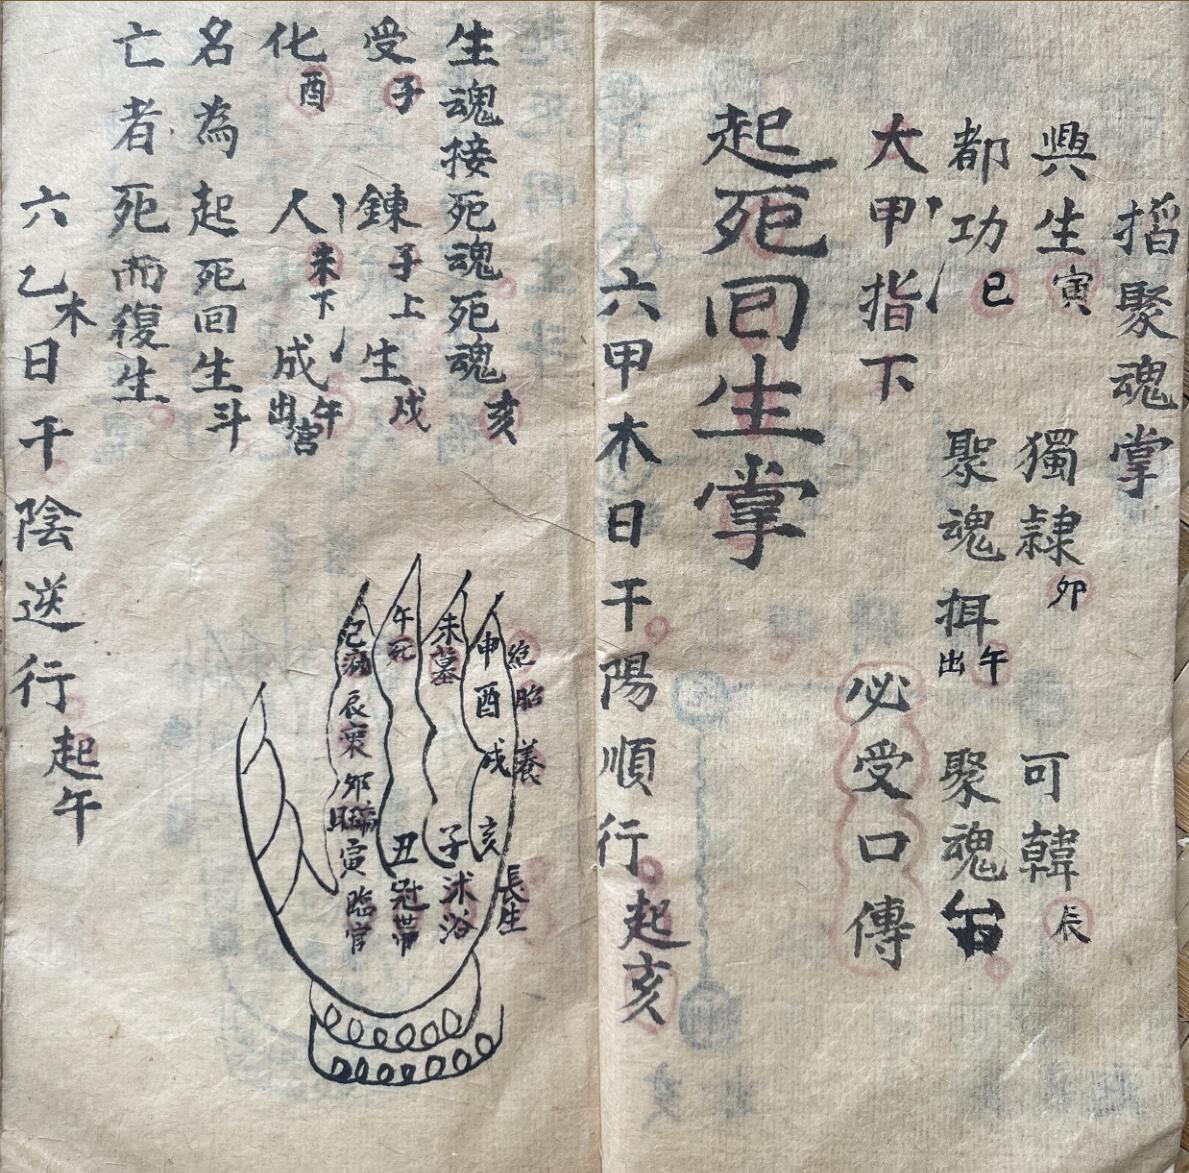 搯聚魂掌
興生寅 獨隸卯 可韓辰
都功巳 聚魂挕午出 聚魂
大甲指下 必受口傳
起死回生掌
六甲木日干陽順行起亥
生魂接死魂死魂亥
受子鍊子上生戌
化酉人未下成午出宮
名為起死回生斗
亡者死而復生
六乙木日干陰逆行起午
巳病
午死
未墓
申絕
酉胎
戌養
亥長生
子沐浴
丑冠帶
寅臨官
卯
辰衰